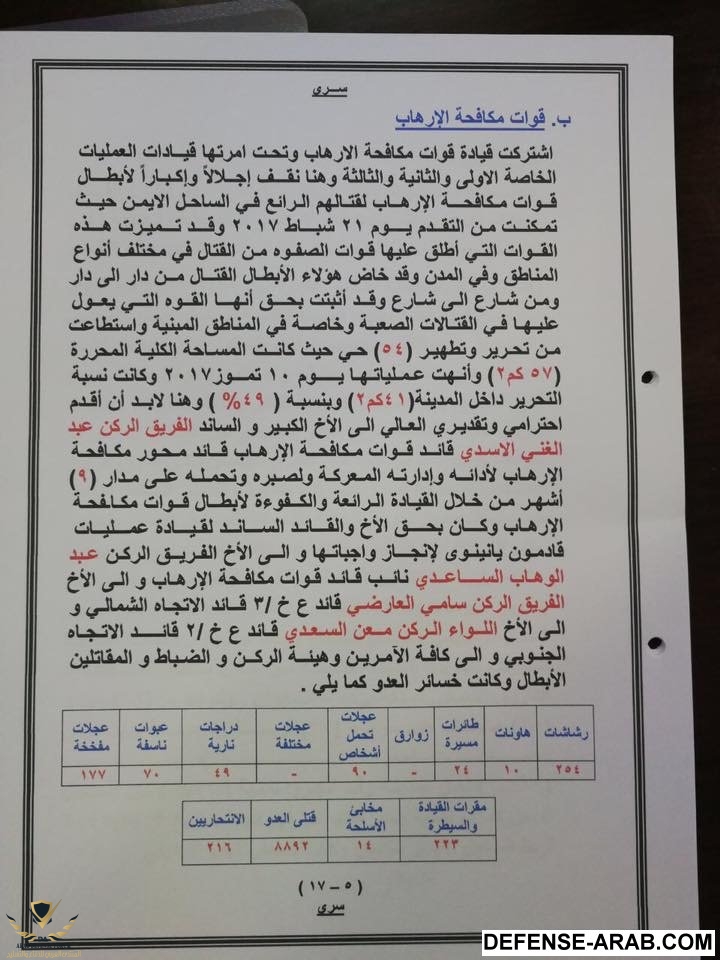 سـري
ب. قوات مكافحة الإرهاب
اشتركت قيادة قوات مكافحة الارهاب وتحت امرتها قيادات العمليات
الخاصة الاولى والثانية والثالثة وهنا نقف إجلالاً وإكباراً لأبطال
قوات مكافحة الإرهاب لقتالهم الرائع في الساحل الايمن حيث
تمكنت من التقدم يوم ٢١ شباط ٢٠١٧ وقد تميزت هذه
القوات التي أطلق عليها قوات الصفوه من القتال في مختلف أنواع
المناطق وفي المدن وقد خاض هؤلاء الأبطال القتال من دار الى دار
ومن شارع الى شارع وقد أثبتت بحق أنها القوه التي يعول
عليها في القتالات الصعبة وخاصة في المناطق المبنية واستطاعت
من تحرير وتطهير (٥٤) حي حيث كانت المساحة الكلية المحررة
(٥٧ كم٢) وأنهت عملياتها يوم ١٠ تموز٢٠١٧ وكانت نسبة
التحرير داخل المدينة(٤١كم٢) وبنسبة ( ٤٩% ) وهنا لابد أن أقدم
احترامي وتقديري العالي الى الأخ الكبير و الساند الفريق الركن عبد
الغني الاسدي قائد قوات مكافحة الإرهاب قائد محور مكافحة
الإرهاب لأدائه وإدارته المعركة ولصبره وتحمله على مدار (٩)
أشهر من خلال القيادة الرائعة والكفوءة لأبطال قوات مكافحة
الإرهاب وكان بحق الأخ والقائد الساند لقيادة عمليات
قادمون يانينوى لإنجاز واجباتها و الى الأخ الفريق الركن عبد
الوهاب الساعدي نائب قائد قوات مكافحة الإرهاب و الى الأخ
الفريق الركن سامي العارضي قائد ع خ /٣ قائد الاتجاه الشمالي و
الى الأخ اللواء الركن معن السعدي قائد ع خ /٢ قائد الاتجاه
الجنوبي و الى كافة الآمرين وهيئة الركن و الضباط و المقاتلين
الأبطال وكانت خسائر العدو كما يلي .
رشاشات هاونات طائرات مسيرة زوارق عجلات تحمل أشخاص عجلات مختلفة دراجات نارية عبوات ناسفة عجلات مفخخة
٢٥٤ ١٠ ٢٤ - ٩٠ - ٤٩ ٧٠ ١٧٧
مقرات القيادة والسيطرة مخابئ الأسلحة قتلى العدو الانتحاريين
٢٢٣ ١٤ ٨٨٩٢ ٢١٦
( ٥ – ١٧ )
سري
DEFENSE-ARAB.COM